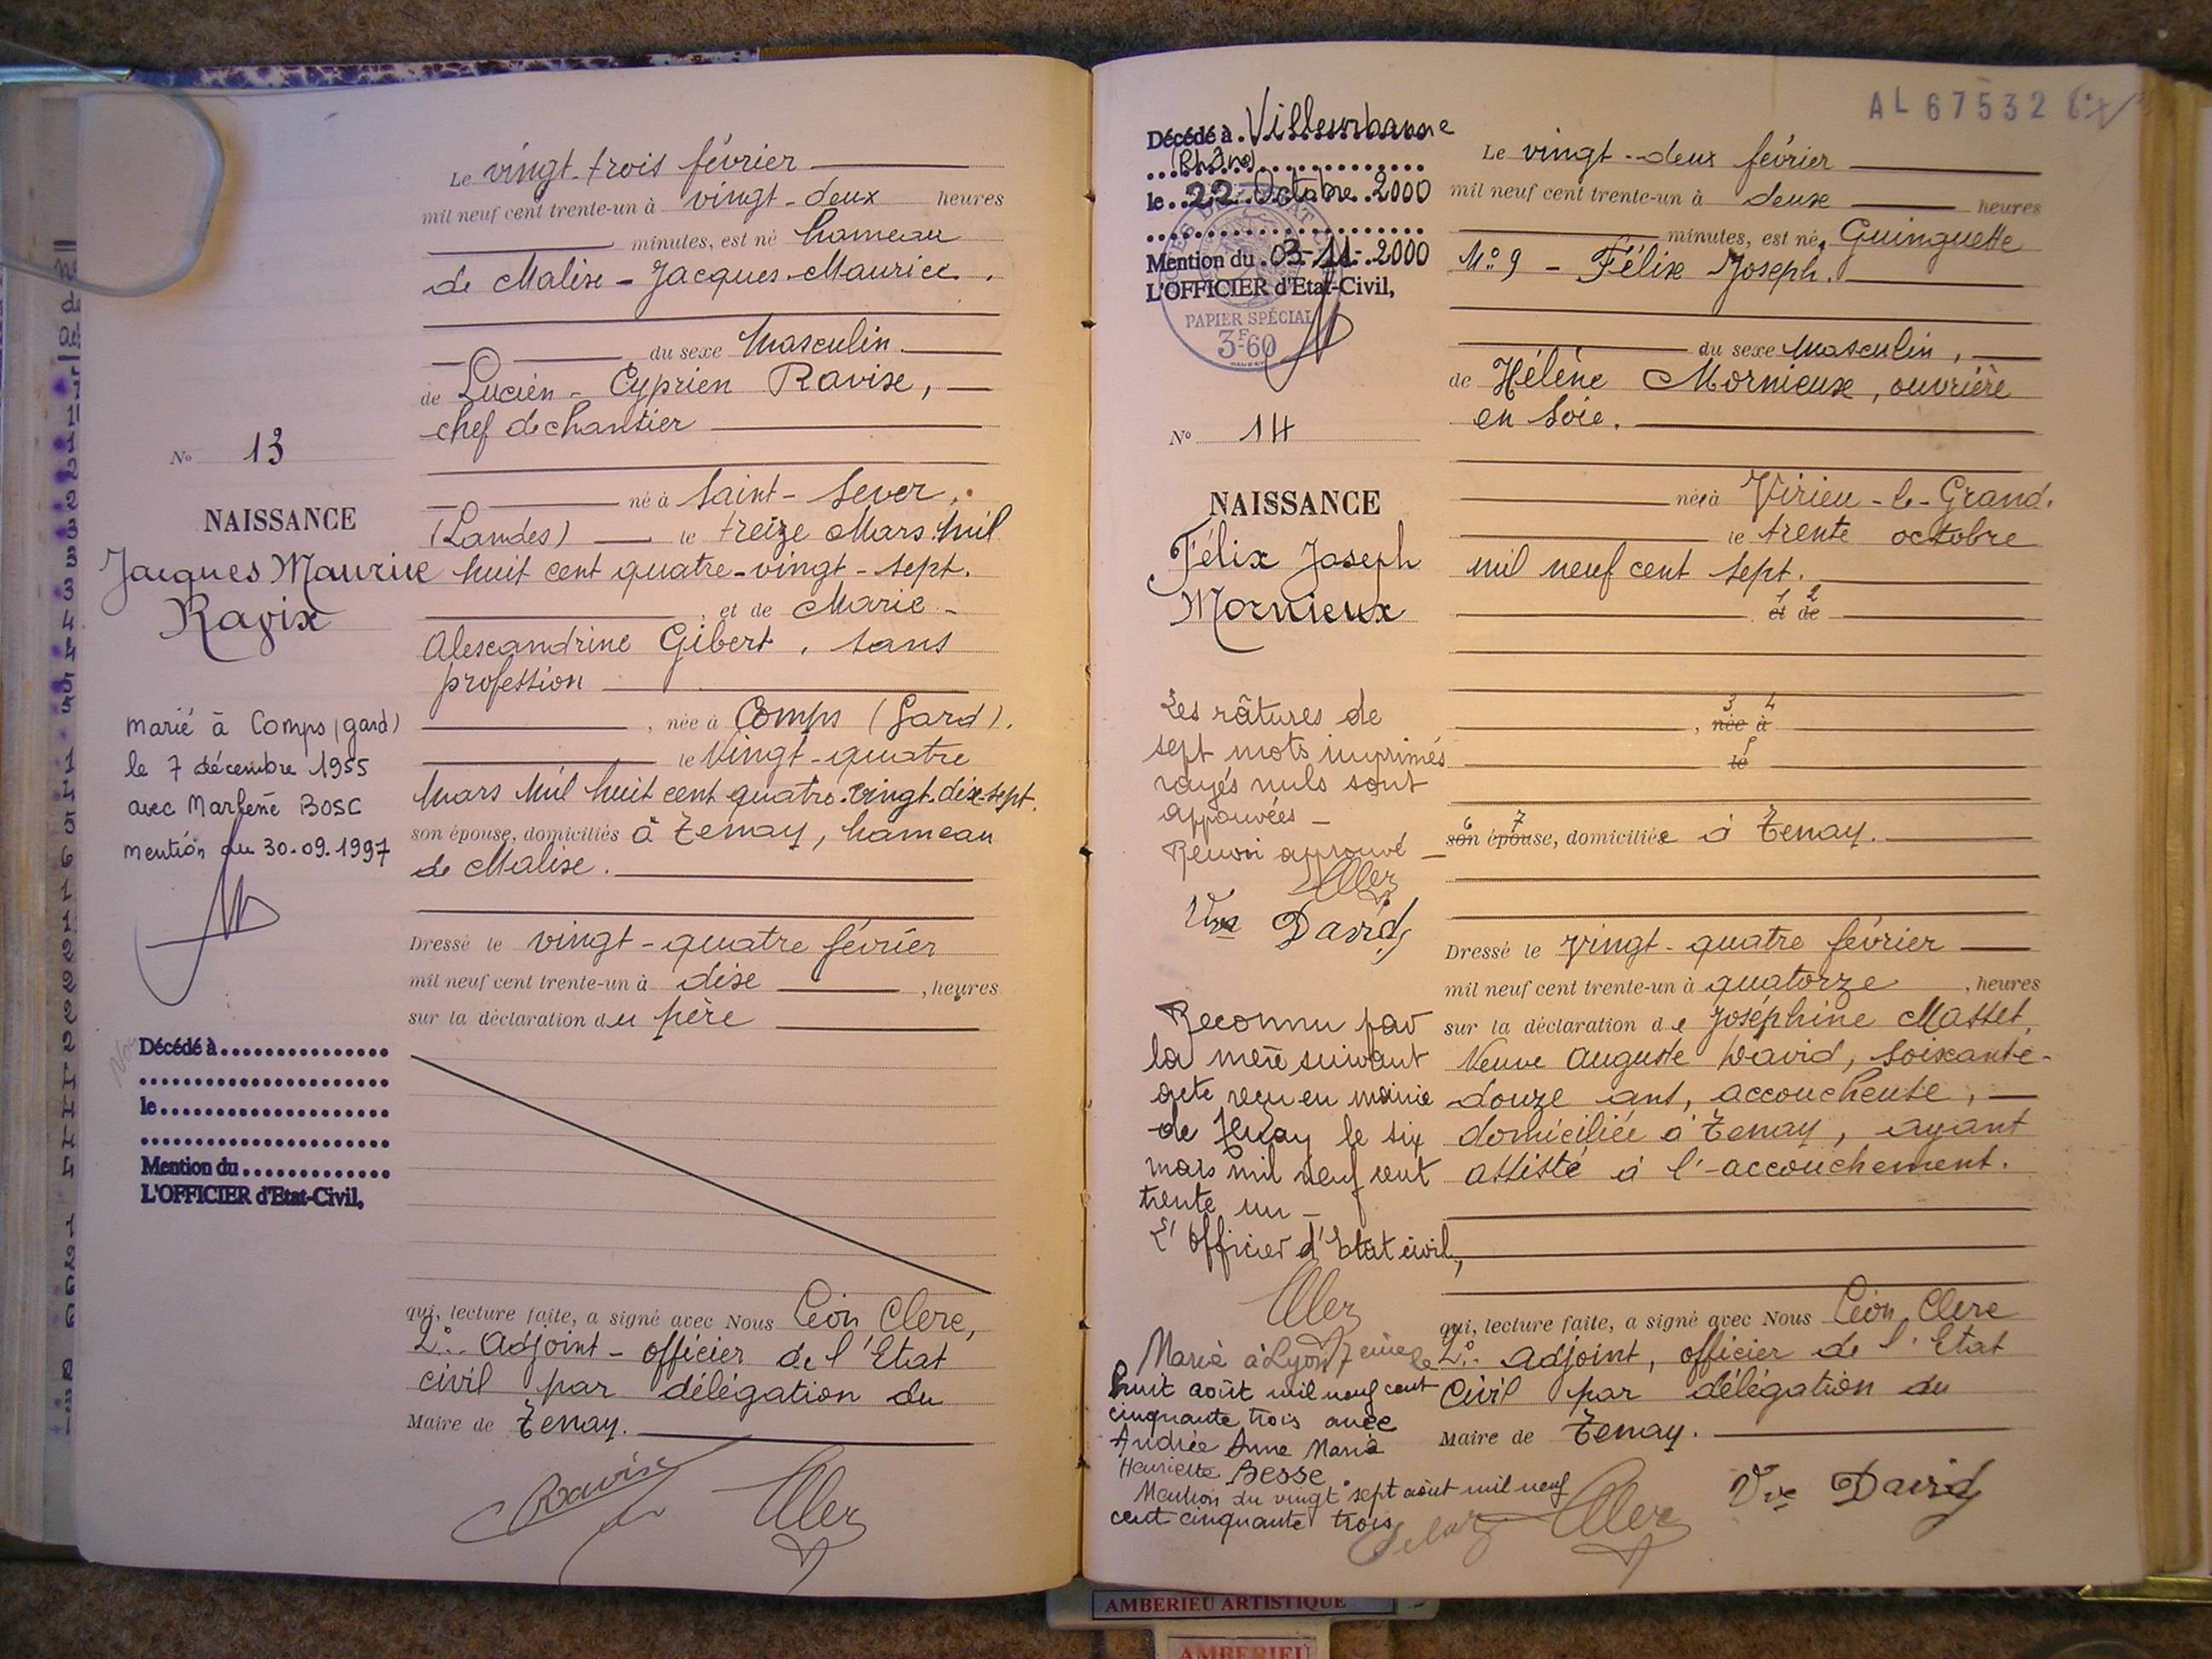 Le vingt-trois février
mil neuf cent trente-un à vingt-deux heures
minutes, est né hameau
de Malix - Jacques-Maurice.
du sexe masculin.
de Lucien-Cyprien Ravix,
chef de chantier
né à Saint-Sever,
(Landes) le treize Mars mil
huit cent quatre-vingt-sept.
, et de Marie-
Alexandrine Gibert, sans
profession
, née à Comps (Gard).
le Vingt-quatre
Mars mil huit cent quatre-vingt-dix-sept.
son épouse, domiciliés à Tenay, hameau
de Malix.
Dressé le vingt-quatre février
mil neuf cent trente-un à dix , heures
sur la déclaration du père
qui, lecture faite, a signé avec Nous Léon Clerc,
2e. Adjoint - officier de l'Etat
civil par délégation du
Maire de Tenay.
Ravix
Clerc
No 13
NAISSANCE
Jacques Maurice
Ravix
Marié à Comps (gard)
le 7 décembre 1955
avec Marlène BOSC
mention du 30.09.1997
Décédé à
le
Mention du
L'OFFICIER d'Etat-Civil,
AL 67532
Décédé à Villeurbanne
(Rhône)
le 22 Octobre 2000
Mention du 03-11-2000
L'OFFICIER d'Etat-Civil,
PAPIER SPÉCIAL
3F60
No 14
NAISSANCE
Félix Joseph
Mornieux
Les râtures de
sept mots imprimés
rayés nuls sont
approuvées -
Renvoi approuvé -
Clerc
Vve David
Reconnu par
la mère suivant
acte reçu en mairie
de Tenay le six
mars mil neuf cent
trente un -
L'Officier d'Etat civil,
Clerc
Marié à Lyon 7eme le
huit août mil neuf cent
cinquante trois avec
Andrée Anne Maria
Henriette Besse
Mention du vingt sept août mil neuf
cent cinquante trois
Le vingt-deux février
mil neuf cent trente-un à deux heures
minutes, est né, Guinguette
No 9 - Félix Joseph.
du sexe masculin,
de Hélène Mornieux, ouvrière
en soie.
née à Virieu-le-Grand.
le trente octobre
mil neuf cent sept.
1 2
et de
3 4
, née à
5
le
6 7
son épouse, domiciliée à Tenay.
Dressé le vingt-quatre février
mil neuf cent trente-un à quatorze , heures
sur la déclaration de Joséphine Masset,
Veuve Auguste David, soixante-
douze ans, accoucheuse,
domiciliée à Tenay, ayant
assisté à l'accouchement.
qui, lecture faite, a signé avec Nous Léon Clerc
2e. Adjoint, officier de l'Etat
Civil par délégation du
Maire de Tenay.
Clerc
Vve David
AMBERIEU ARTISTIQUE
AMBERIEU